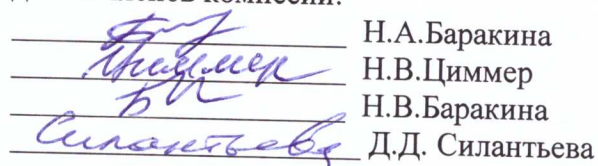 членов комиссии:
Н.А.Баракина
Циммер Н.В.Циммер
Н.В.Баракина
Силантьева Д.Д. Силантьева